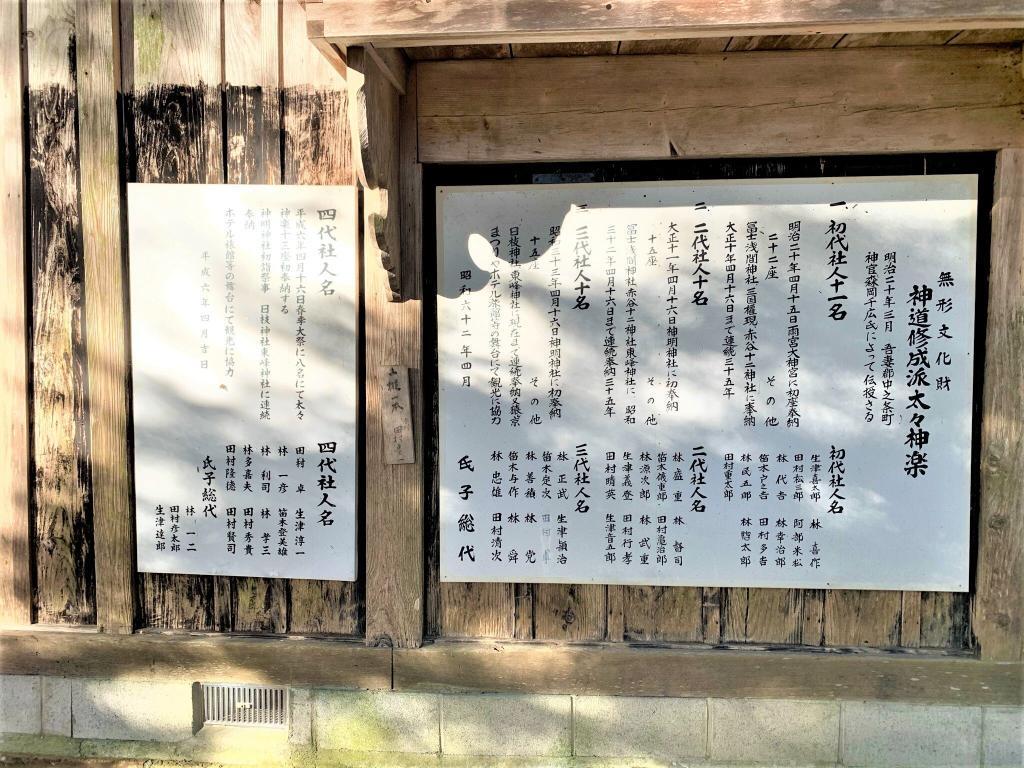 無形文化財
神道修成派太々神楽
明治二十年三月 吾妻郡中之条町
神官森岡千広氏によって伝授さる
一 初代社人十一名
明治二十年四月十五日雨宮大神宮に初座奉納
二十二座 その他
冨士浅間神社三国權現赤谷十二神社に奉納
大正十年四月十六日まで連続三十五年
二 二代社人十名
大正十一年四月十六日神明神社に初奉納
十五座 その他
冨士浅間神社赤谷十二神社東峰神社に 昭和
三十二年四月十六日まで連続奉納三十五年
三 三代社人十名
昭和三十三年四月十六日神明神社に初奉納
十五座 その他
日枝神社東峰神社に現在まで連続奉納又猿京
まつりやホテル湖舘寺の舞台にて観光に協力
昭和六十二年四月
初代社人名
生津喜太郎 林 喜作
田村松三郎 阿部米松
林代吉 林幸治郎
笛木宇之吉 田村多吉
林民五郎 林惣太郎
田村重太郎
二代社人名
林盛重 林督司
笛木儀重郎 田村亀治郎
林源次郎 林武重
生津義登 田村行孝
田村晴英 生津音五郎
三代社人名
林正武 生津穎治
笛木定次 田田卓
林善積 林党
笛木与作 林舜
林忠雄 田村清次
氏子総代
四代社人名
平成六年四月十六日春季大祭に八名にて太々
神楽十三座初奉納する
神明神社初詣祭事 日枝神社東峰神社に連続
奉納
ホテル猿舘等の舞台にて観光に協力
平成六年四月吉日
四代社人名
田村卓 生津淳一
林一彦 笛木登美雄
林利司 林孝三
林多嘉夫 田村秀貴
田村隆徳 田村賢司
氏子総代
林一二
田村彦太郎
生津達郎